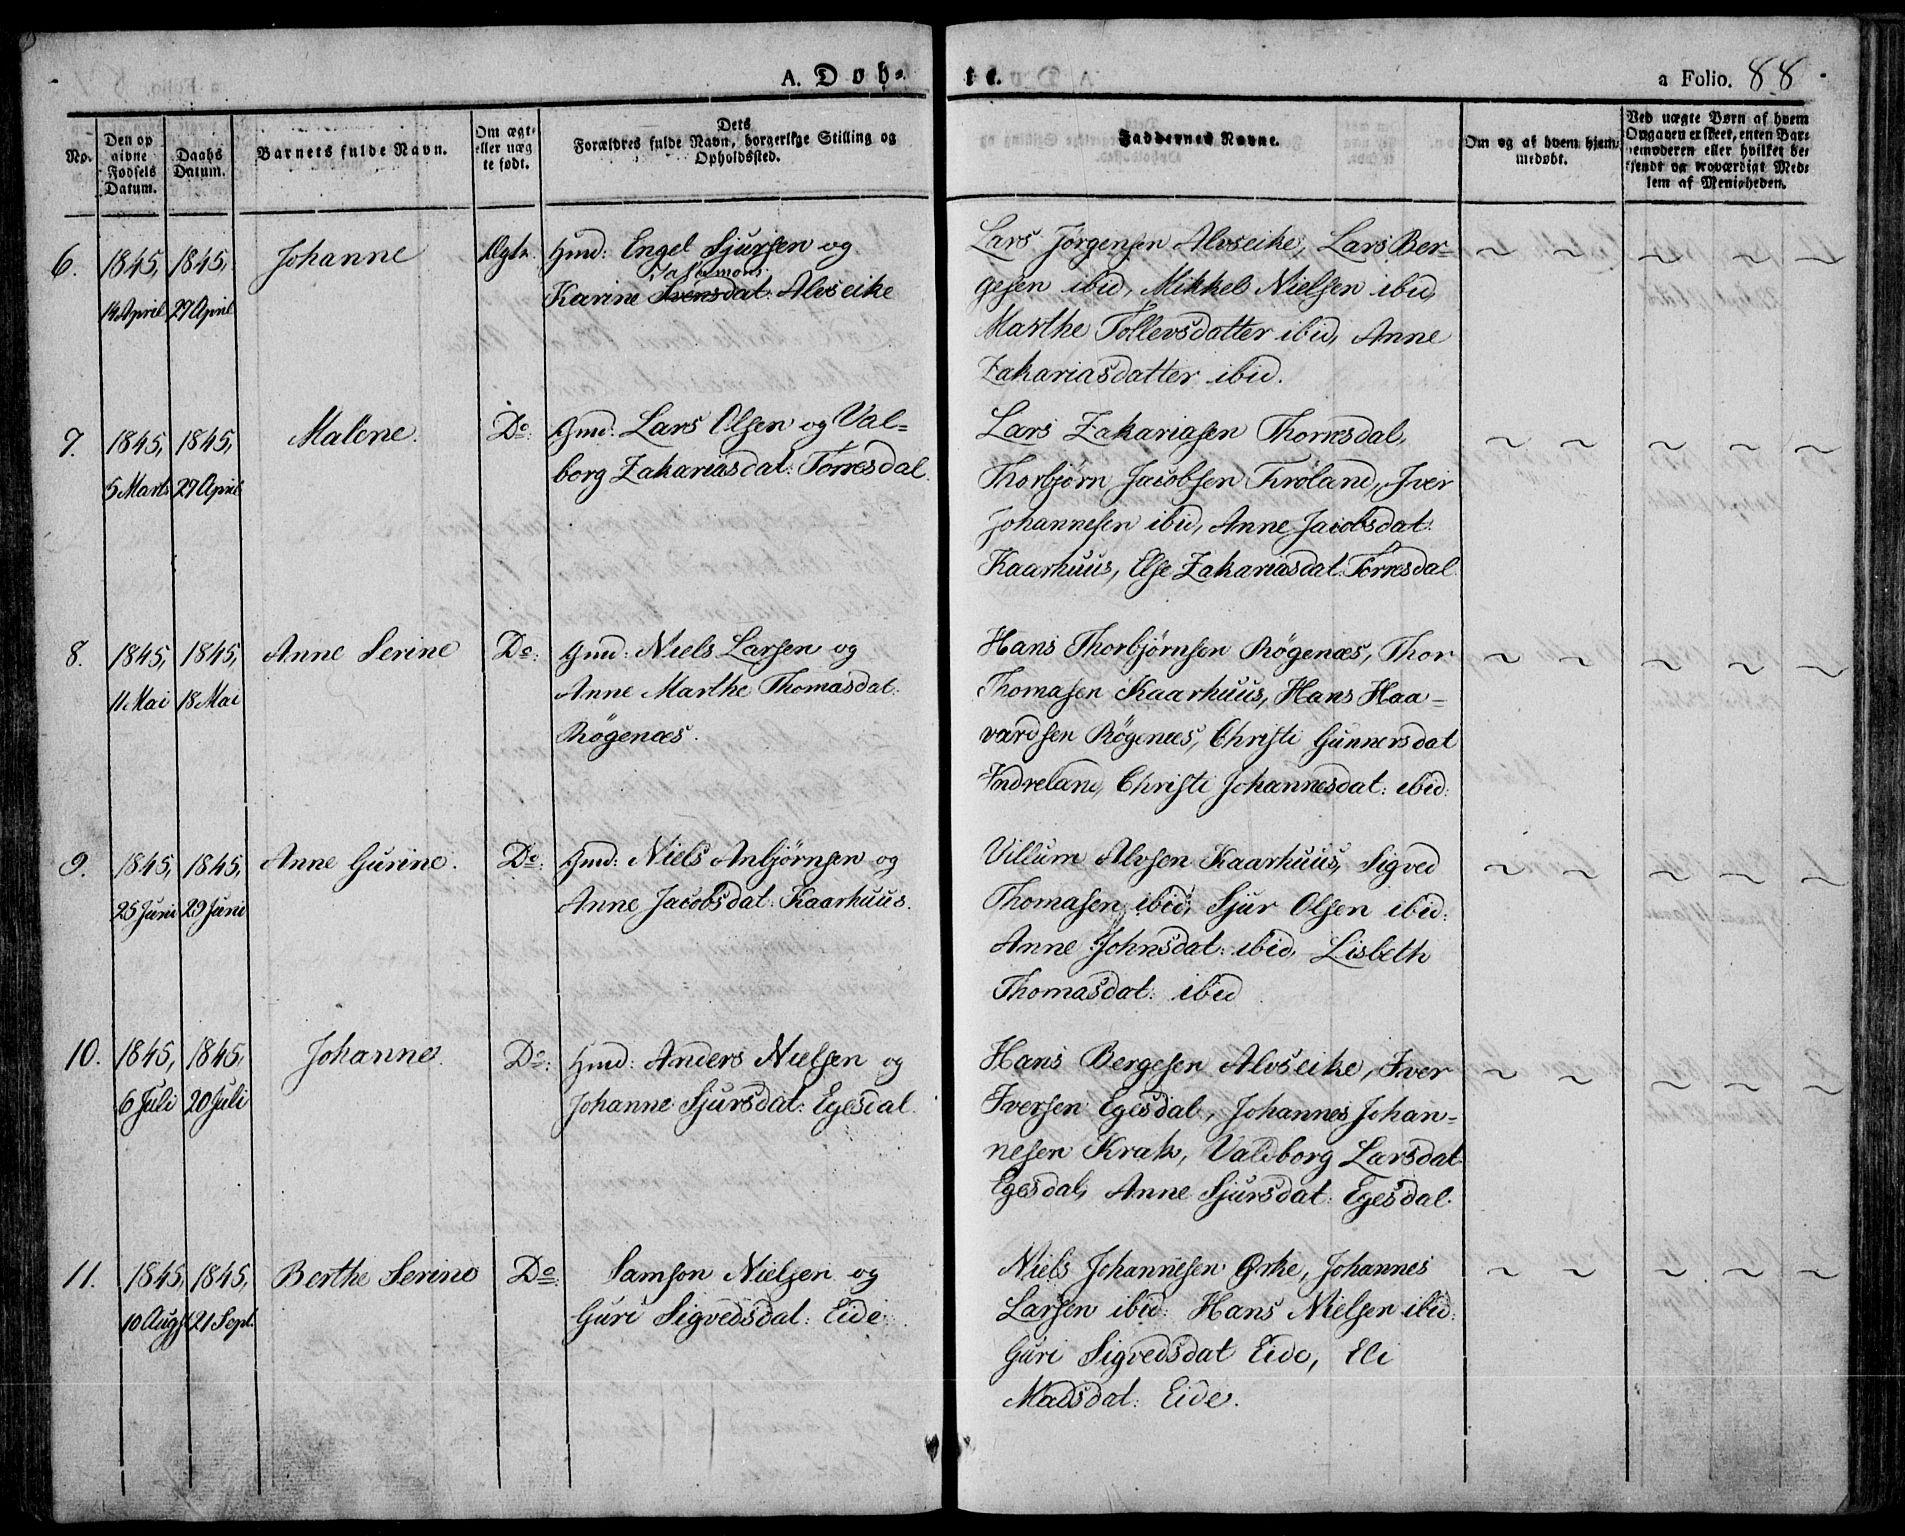 A. Døb=
te.
a Folio. 88
No.
Den op
givne
Fødsels
Datum.
Daabs
Datum.
Barnets fulde Navn.
Om ægte
eller uæg
te født.
Dets
Forældres fulde Navn, borgerlige Stilling og
Opholdssted.
Faddernes Navne.
Om og af hvem hjem-
medøbt.
Ved uægte Børn af hvem
Opgaven er skeet, enten Bar-
nemoderen eller hvilket be-
kjendt og troværdigt Med-
lem af Menigheden.
6.
1845,
14 April
1845,
27 April
Johanne
Ægte
Gmd: Engel Sjursen og
Salamons
Karine Svensdat: Alvseike
Lars Jørgensen Alvseike, Lars Ber=
gesen ibid, Mikkel Nielsen ibid,
Marthe Tollevsdatter ibid, Anne
Zakariasdatter ibid.
7.
1845,
5 Marts
1845,
27 April
Malene.
Do:
Gmd: Lars Olsen og Val=
borg Zakariasdat: Torresdal.
Lars Zakariasen Thorresdal,
Thorbjørn Jacobsen Frøland, Iver
Johannesen ibid, Anne Jacobsdat:
Kaarhuus, Else Zakariasdat: Torresdal
8.
1845,
11 Mai
1845,
18 Mai
Anne Serine
Do:
Gmd: Niels Larsen og
Anne Marthe Thomasdat:
Røgenæs.
Hans Thorbjørnsen Røgenæs, Thor
Thomasen Kaarhuus, Hans Haa=
vardsen Røgenæs, Christi Gunnersdat
Indreland, Christi Johannesdat: ibid:
9.
1845,
25 Juni
1845,
29 Juni
Anne Gurine.
Do:
Gmd: Niels Anbjørnsen og
Anne Jacobsdat: Kaarhuus.
Villum Alvsen Kaarhuus, Sigved
Thomasen ibid, Sjur Olsen ibid:
Anne Johnsdat: ibid, Lisbeth
Thomasdat: ibid
10.
1845,
6 Juli
1845,
20 Juli
Johanne.
Do:
Gmd: Anders Nielsen og
Johanne Sjursdat: Egesdal.
Hans Bergesen Alvseike, Iver
Iversen Egesdal, Johannes Johan=
nesen Krak, Valdborg Larsdat
Egesdal, Anne Sjursdat: Egesdal.
11.
1845,
10 Augst
1845,
21 Sept.
Berthe Serine
Do:
Samson Nielsen og
Guri Sigvedsdat: Eide.
Niels Johannesen Ørke, Johannes
Larsen ibid: Hans Nielsen ibid:
Guri Sigvedsdat Eide, Eli
Madsdat: Eide.